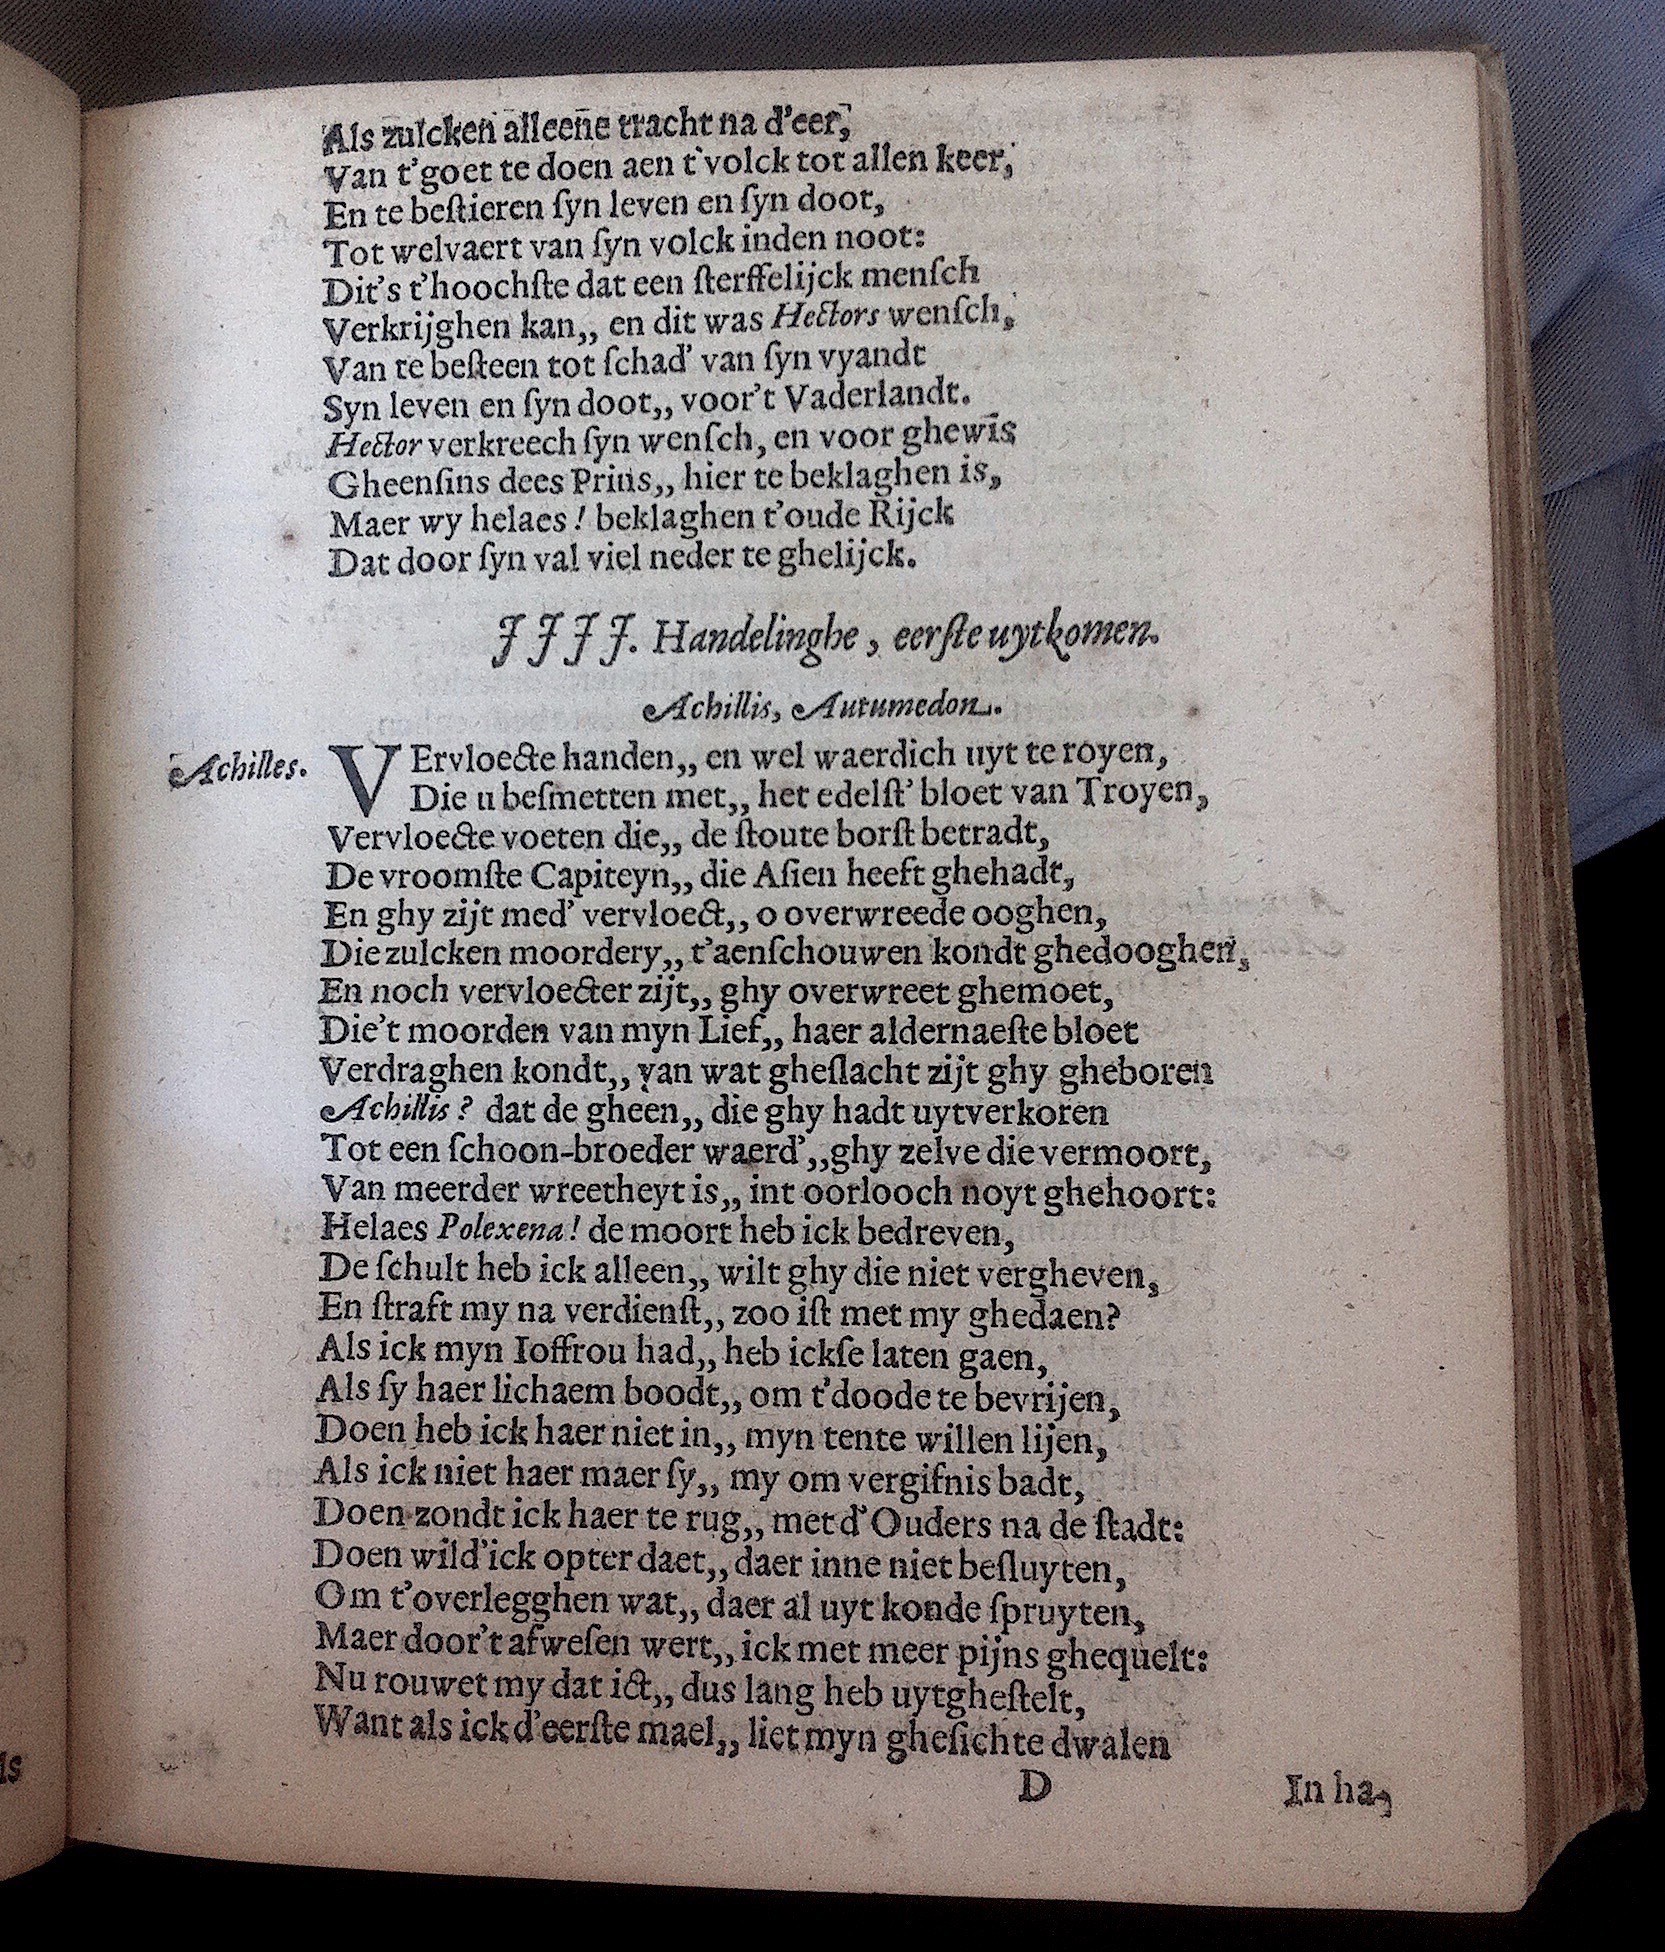 Als zulcken alleene tracht na d'eer,
Van t'goet te doen aen t'volck tot allen keer,
En te beſtieren ſyn leven en ſyn doot,
Tot welvaert van ſyn volck inden noot:
Dit's t'hoochſte dat een ſterffelijck menſch
Verkrijghen kan,, en dit was Hectors wenſch,
Van te beſteen tot ſchad' van ſyn vyandt
Syn leven en ſyn doot,, voor't Vaderlandt.
Hector verkreech ſyn wenſch, en voor ghewis
Gheenſins dees Prins,, hier te beklaghen is,
Maer wy helaes! beklaghen t'oude Rijck
Dat door ſyn val viel neder te ghelijck.
IIII. Handelinghe, eerſte uytkomen.
Achillis, Autumedon.
Achilles. VErvloecte handen,, en wel waerdich uyt te royen,
Die u beſmetten met,, het edelſt' bloet van Troyen,
Vervloecte voeten die,, de ſtoute borſt betradt,
De vroomſte Capiteyn,, die Aſien heeft ghehadt,
En ghy zijt med' vervloect,, o overwreede ooghen,
Die zulcken moordery,, t'aenſchouwen kondt ghedooghen,
En noch vervloecter zijt,, ghy overwreet ghemoet,
Die't moorden van myn Lief,, haer aldernaeſte bloet
Verdraghen kondt,, van wat gheſlacht zijt ghy gheboren
Achillis? dat de gheen,, die ghy hadt uytverkoren
Tot een ſchoon-broeder waerd',,ghy zelve die vermoort,
Van meerder wreetheyt is,, int oorlooch noyt ghehoort:
Helaes Polexena! de moort heb ick bedreven,
De ſchult heb ick alleen,, wilt ghy die niet vergheven,
En ſtraft my na verdienſt,, zoo iſt met my ghedaen?
Als ick myn Ioffrou had,, heb ickſe laten gaen,
Als ſy haer lichaem boodt,, om t'doode te bevrijen,
Doen heb ick haer niet in,, myn tente willen lijen,
Als ick niet haer maer ſy,, my om vergifnis badt,
Doen zondt ick haer te rug,, met d'Ouders na de ſtadt:
Doen wild'ick opter daet,, daer inne niet beſluyten,
Om t'overlegghen wat,, daer al uyt konde ſpruyten,
Maer door't afweſen wert,, ick met meer pijns ghequelt:
Nu rouwet my dat ict,, dus lang heb uytgheſtelt,
Want als ick d'eerſte mael,, liet myn gheſichte dwalen
D
In ha-
ls